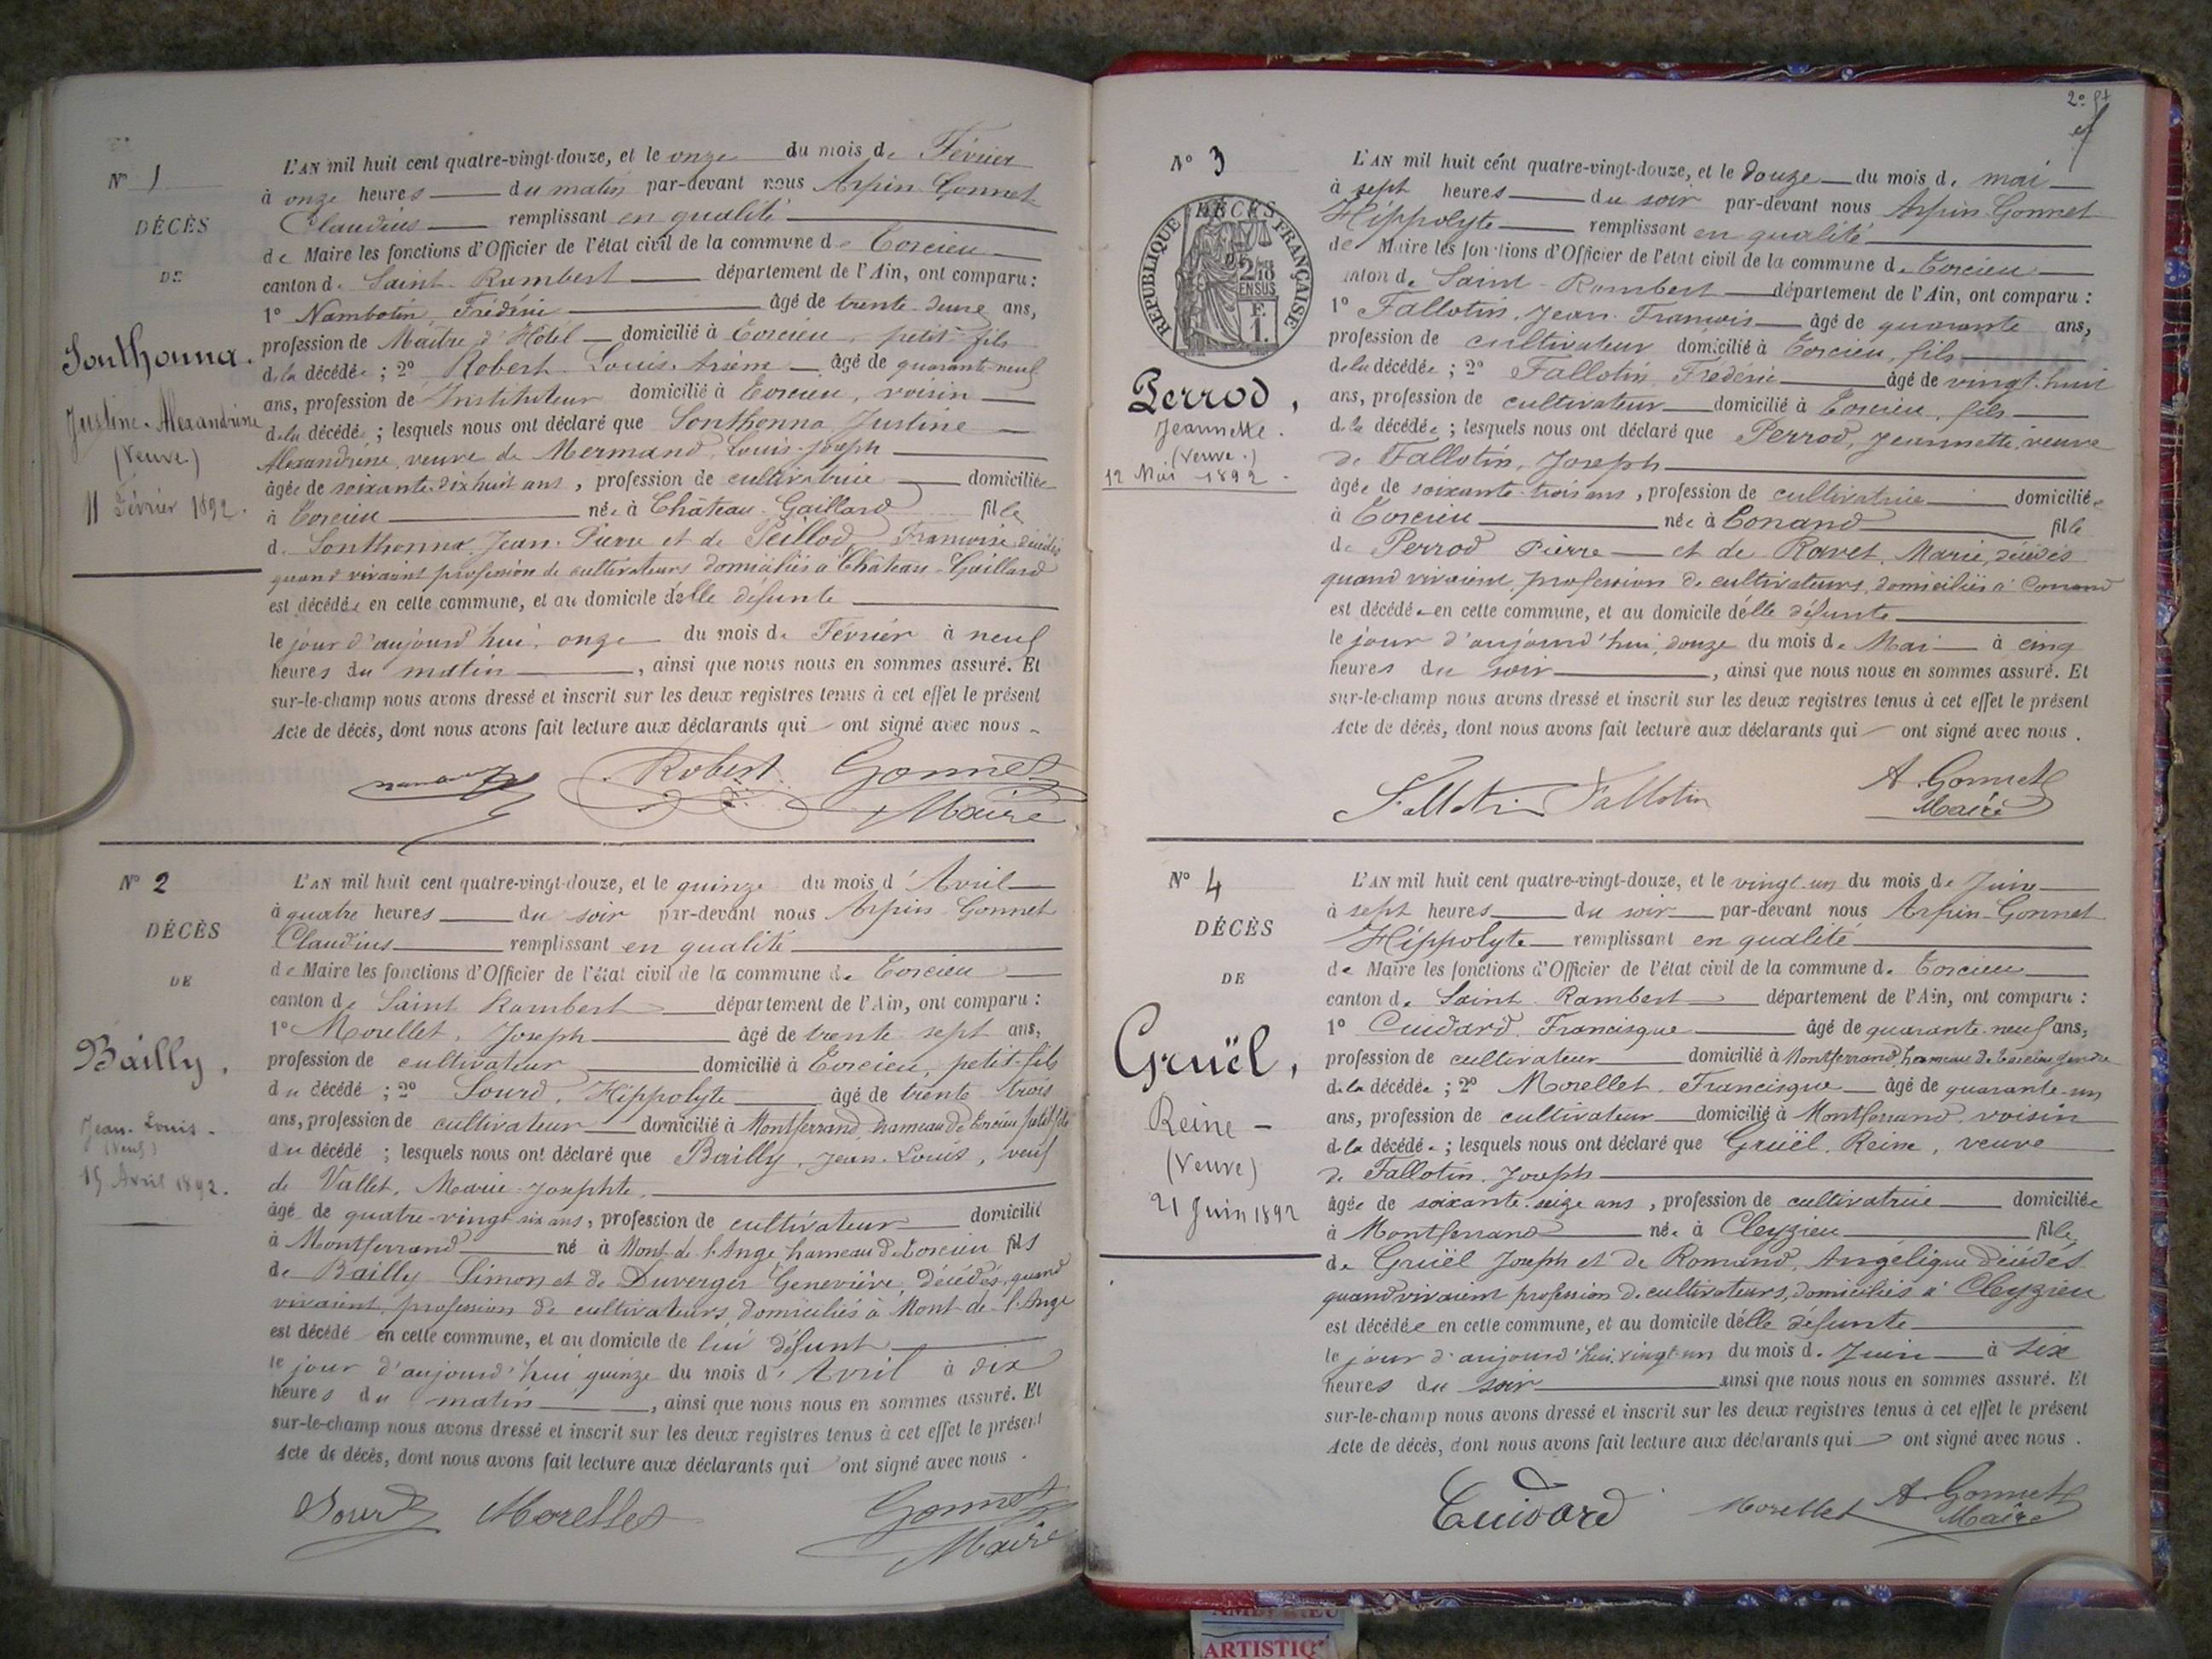 N° 1
DÉCÈS
DE
Sonthonna.
Justine-Alexandrine
(Veuve)
11 Février 1892.
L'AN mil huit cent quatre-vingt-douze, et le onze du mois de Février
à onze heures du matin par-devant nous Arpin-Gonnet
Claudius remplissant en qualité
de Maire les fonctions d'Officier de l'état civil de la commune de Torcieu
canton de Saint-Rambert département de l'Ain, ont comparu :
1° Nambotin, Frédéric âgé de trente-deux ans,
profession de Maître d'Hôtel domicilié à Torcieu, petit-fils
de la décédée ; 2° Robert Louis-Arsène âgé de quarante-neuf
ans, profession de Instituteur domicilié à Torcieu, voisin
de la décédée ; lesquels nous ont déclaré que Sonthonna Justine
Alexandrine, veuve de Mermand, Louis-Joseph
âgée de soixante-dix huit ans, profession de cultivatrice domiciliée
à Torcieu née à Château-Gaillard fille
de Sonthonna, Jean-Pierre et de Peillod, Françoise, décédés
quand vivaient profession de cultivateurs domiciliés à Château-Gaillard
est décédée en cette commune, et au domicile d'elle défunte
le jour d'aujourd'hui, onze du mois de Février à neuf
heures du matin, ainsi que nous nous en sommes assuré. Et
sur-le-champ nous avons dressé et inscrit sur les deux registres tenus à cet effet le présent
Acte de décès, dont nous avons fait lecture aux déclarants qui ont signé avec nous.
Robert Gonnet
Maire
N° 2
DÉCÈS
DE
Bailly,
Jean-Louis-
(Veuf)
15 Avril 1892.
L'AN mil huit cent quatre-vingt-douze, et le quinze du mois d'Avril
à quatre heures du soir par-devant nous Arpin-Gonnet
Claudius remplissant en qualité
de Maire les fonctions d'Officier de l'état civil de la commune de Torcieu
canton de Saint Rambert département de l'Ain, ont comparu :
1° Morellet, Joseph âgé de trente-sept ans,
profession de cultivateur domicilié à Torcieu, petit-fils
du décédé ; 2° Sourd, Hippolyte âgé de trente trois
ans, profession de cultivateur domicilié à Montferrand, hameau de Torcieu petit-fils
du décédé ; lesquels nous ont déclaré que Bailly, Jean-Louis, veuf
de Vallet, Marie-Josephte,
âgé de quatre-vingt-six ans, profession de cultivateur domicilié
à Montferrand né à Mont-de-l'Ange hameau de Torcieu fils
de Bailly Simon et de Duverger Geneviève, décédés, quand
vivaient, profession de cultivateurs, domiciliés à Mont-de-l'Ange
est décédé en cette commune, et au domicile de lui défunt
le jour d'aujourd'hui quinze du mois d'Avril à dix
heures du matin, ainsi que nous nous en sommes assuré. Et
sur-le-champ nous avons dressé et inscrit sur les deux registres tenus à cet effet le présent
Acte de décès, dont nous avons fait lecture aux déclarants qui ont signé avec nous.
Sourd Morellet Gonnet
Maire
2e ft
N° 3
DÉCÈS
RÉPUBLIQUE FRANÇAISE
2/10 EN SUS
F. 1.
Perrod,
Jeannette.
(Veuve.)
12 Mai 1892.
L'AN mil huit cent quatre-vingt-douze, et le douze du mois de mai
à sept heures du soir par-devant nous Arpin-Gonnet
Hippolyte remplissant en qualité
de Maire les fonctions d'Officier de l'état civil de la commune de Torcieu
canton de Saint-Rambert département de l'Ain, ont comparu :
1° Fallotin, Jean-François âgé de quarante ans,
profession de cultivateur domicilié à Torcieu, fils
de la décédée ; 2° Fallotin, Frédéric âgé de vingt-huit
ans, profession de cultivateur domicilié à Torcieu, fils
de la décédée ; lesquels nous ont déclaré que Perrod, Jeannette, veuve
de Fallotin, Joseph
âgée de soixante-trois ans, profession de cultivatrice domiciliée
à Torcieu née à Conand fille
de Perrod Pierre et de Ravet, Marie, décédés
quand vivaient, profession de cultivateurs, domiciliés à Conand
est décédée en cette commune, et au domicile d'elle défunte
le jour d'aujourd'hui, douze du mois de Mai à cinq
heures du soir, ainsi que nous nous en sommes assuré. Et
sur-le-champ nous avons dressé et inscrit sur les deux registres tenus à cet effet le présent
Acte de décès, dont nous avons fait lecture aux déclarants qui ont signé avec nous.
Fallotin Fallotin A. Gonnet
Maire
N° 4
DÉCÈS
DE
Gruël,
Reine-
(Veuve)
21 Juin 1892
L'AN mil huit cent quatre-vingt-douze, et le vingt-un du mois de Juin
à sept heures du soir par-devant nous Arpin-Gonnet
Hippolyte remplissant en qualité
de Maire les fonctions d'Officier de l'état civil de la commune de Torcieu
canton de Saint-Rambert département de l'Ain, ont comparu :
1° Cuidard, Francisque âgé de quarante-neuf ans,
profession de cultivateur domicilié à Montferrand, hameau de Torcieu gendre
de la décédée ; 2° Morellet, Francisque âgé de quarante-un
ans, profession de cultivateur domicilié à Montferrand, voisin
de la décédée ; lesquels nous ont déclaré que Gruël, Reine, veuve
de Fallotin, Joseph
âgée de soixante-seize ans, profession de cultivatrice domiciliée
à Montferrand née à Cleyzieu fille
de Gruël Joseph et de Romand, Angélique décédés
quand vivaient profession de cultivateurs, domiciliés à Cleyzieu
est décédée en cette commune, et au domicile d'elle défunte
le jour d'aujourd'hui, vingt-un du mois de Juin à six
heures du soir ainsi que nous nous en sommes assuré. Et
sur-le-champ nous avons dressé et inscrit sur les deux registres tenus à cet effet le présent
Acte de décès, dont nous avons fait lecture aux déclarants qui ont signé avec nous.
Cuidard Morellet A. Gonnet
Maire
AMBÉRIEU
ARTISTIQ